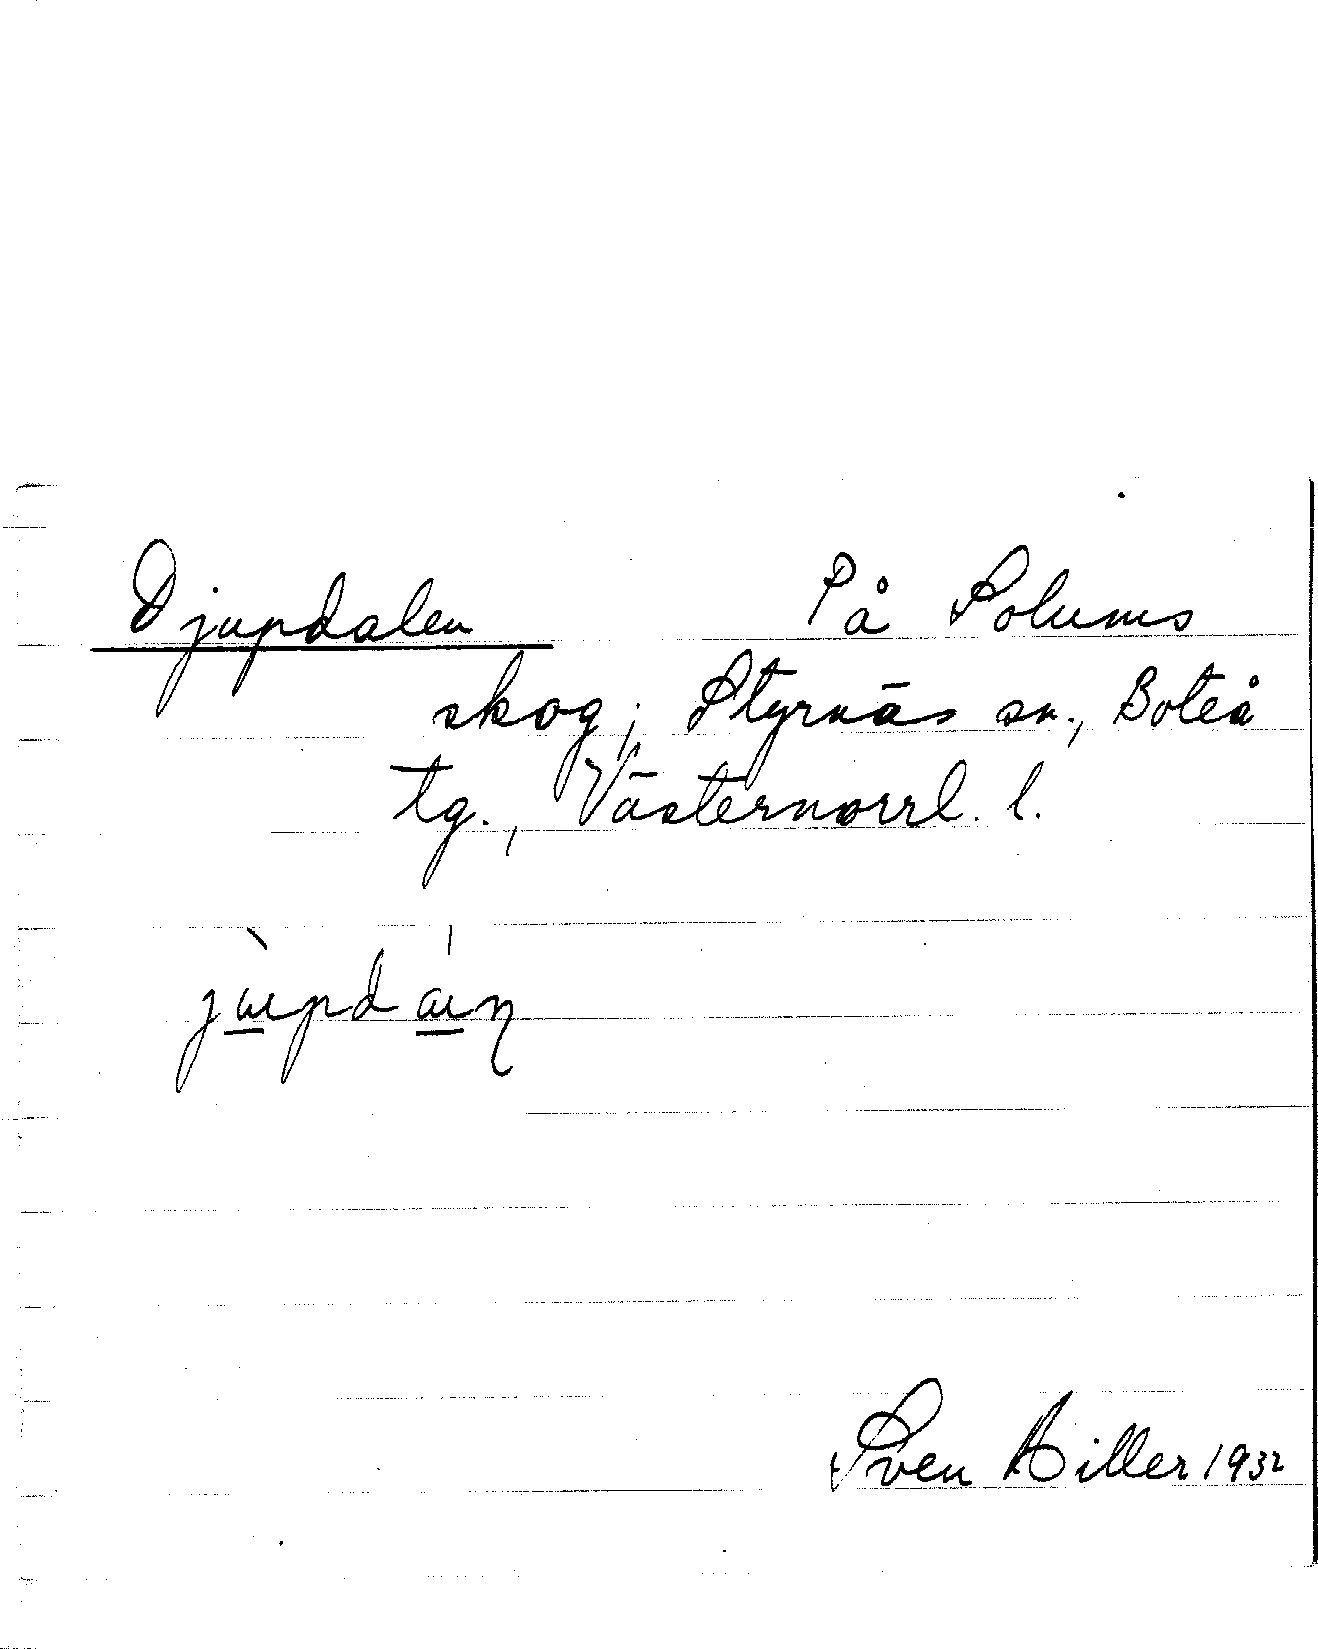 Djupdalen På Solums
skog; Styrnäs sn., Boteå
tg., Västernorrl. l.
Sven Hiller 1932